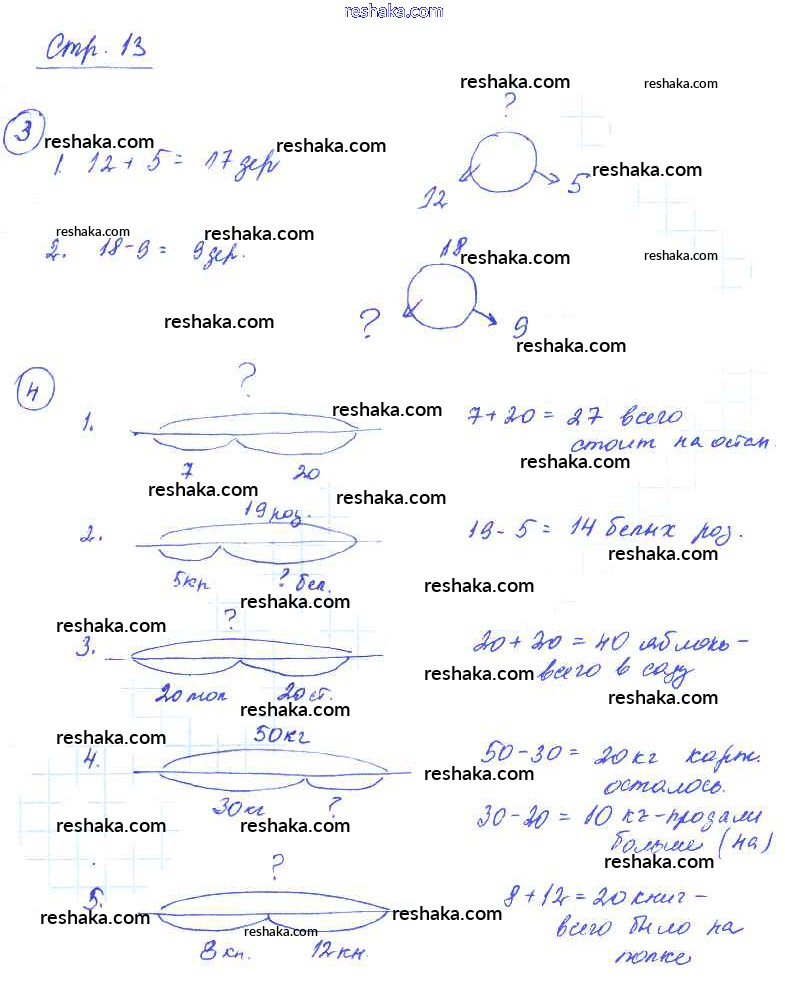 reshaka.com
Стр. 13
reshaka.com reshaka.com
?
3
reshaka.com reshaka.com
1. 12 + 5 = 17 зер
reshaka.com
12 5
reshaka.com reshaka.com
2. 18 - 9 = 9 зер.
18
reshaka.com reshaka.com
reshaka.com
? 9
reshaka.com
4
?
1.
reshaka.com
7 + 20 = 27 всего
стоит на остан.
reshaka.com
7 20
reshaka.com reshaka.com
19 роз.
2.
19 - 5 = 14 белых роз.
reshaka.com
5кр ? бел.
reshaka.com
reshaka.com
?
reshaka.com
3.
20 + 20 = 40 яблонь -
всего в саду
reshaka.com
20 мол 20 ст.
reshaka.com
reshaka.com
reshaka.com
50 кг
4.
50 - 30 = 20 кг карт.
осталось.
reshaka.com
30 кг ?
30 - 20 = 10 кг - продали
больше (на)
reshaka.com reshaka.com
reshaka.com
?
5.
8 + 12 = 20 книг -
всего было на
полке
reshaka.com reshaka.com
reshaka.com
8 кн. 12 кн.